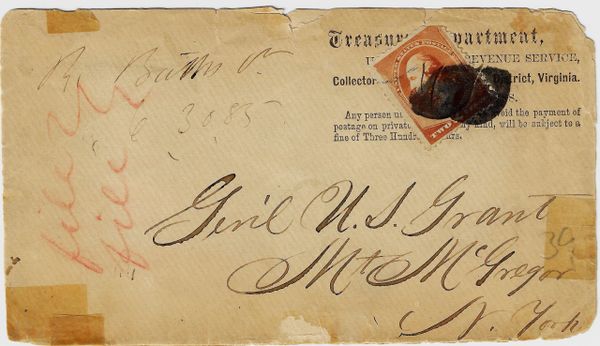 Treasury Department,
REVENUE SERVICE,
Collector District, Virginia.
Any person u avoid the payment of
postage on private any kind, will be subject to a
fine of Three Hundred Dollars.
UNITED STATES POSTAGE
TWO
R.
30 85
file
file
Gen'l U. S. Grant
Mt McGregor
N. York
30